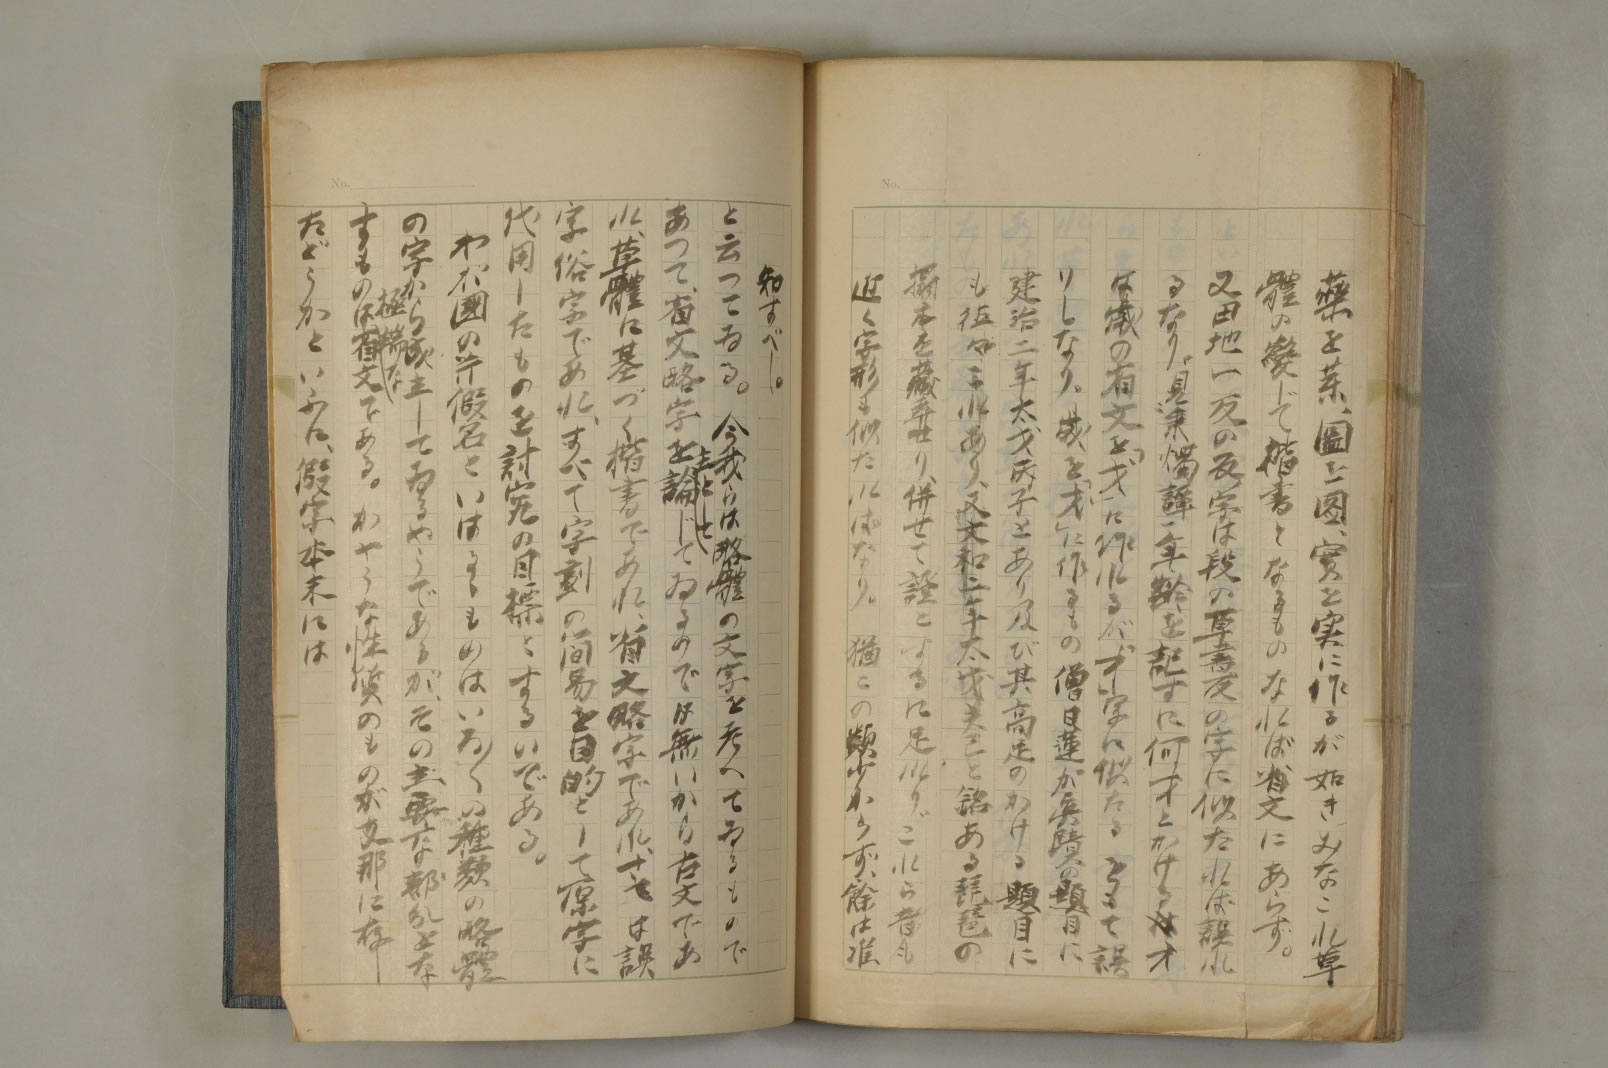 No.
藥を薬、圖を図、實を実に作るが如きみなこれ草
體の變じて楷書となるものなれば省文にあらず。
又田地一反の反字は段の草書反の字に似たれば誤れ
るなり。具乗燭譚ニ年齡を記すに何才とかけるは才
は歳の省文を「才」に作れるが才字に似たるをもて誤
りしなり。歳を「才」に作るもの僧日蓮が眞蹟の題目に
建治二年太才丙子とあり及び其高足のかける題目に
も往々これあり、又文和二年太才癸巳と銘ある琵琶の
搨本を藏弆せり、併せて證とするに足れり。これら音も
近く字形も似たればなり。猶この類少からず、餘は准
No.
知すべし。
と云つてゐる。今我らは略體の文字を考へてゐるもので
あつて、省文略字を主として論じてゐるのでは無いから古文であ
れ、草體に基づく楷書であれ、省文略字であれ、十七は誤
字俗字であれ、すべて字劃の簡易を目的として原字に
代用したものを討究の目標とするいである。
わが國の片假名といはるゝものはいろ〱の種類の略體
の字から成立してゐるやうであるが、その主要な部分をな
すものは極端な省文である。かやうな性質のものが支那に存し
たどうかといふに、假字本末には